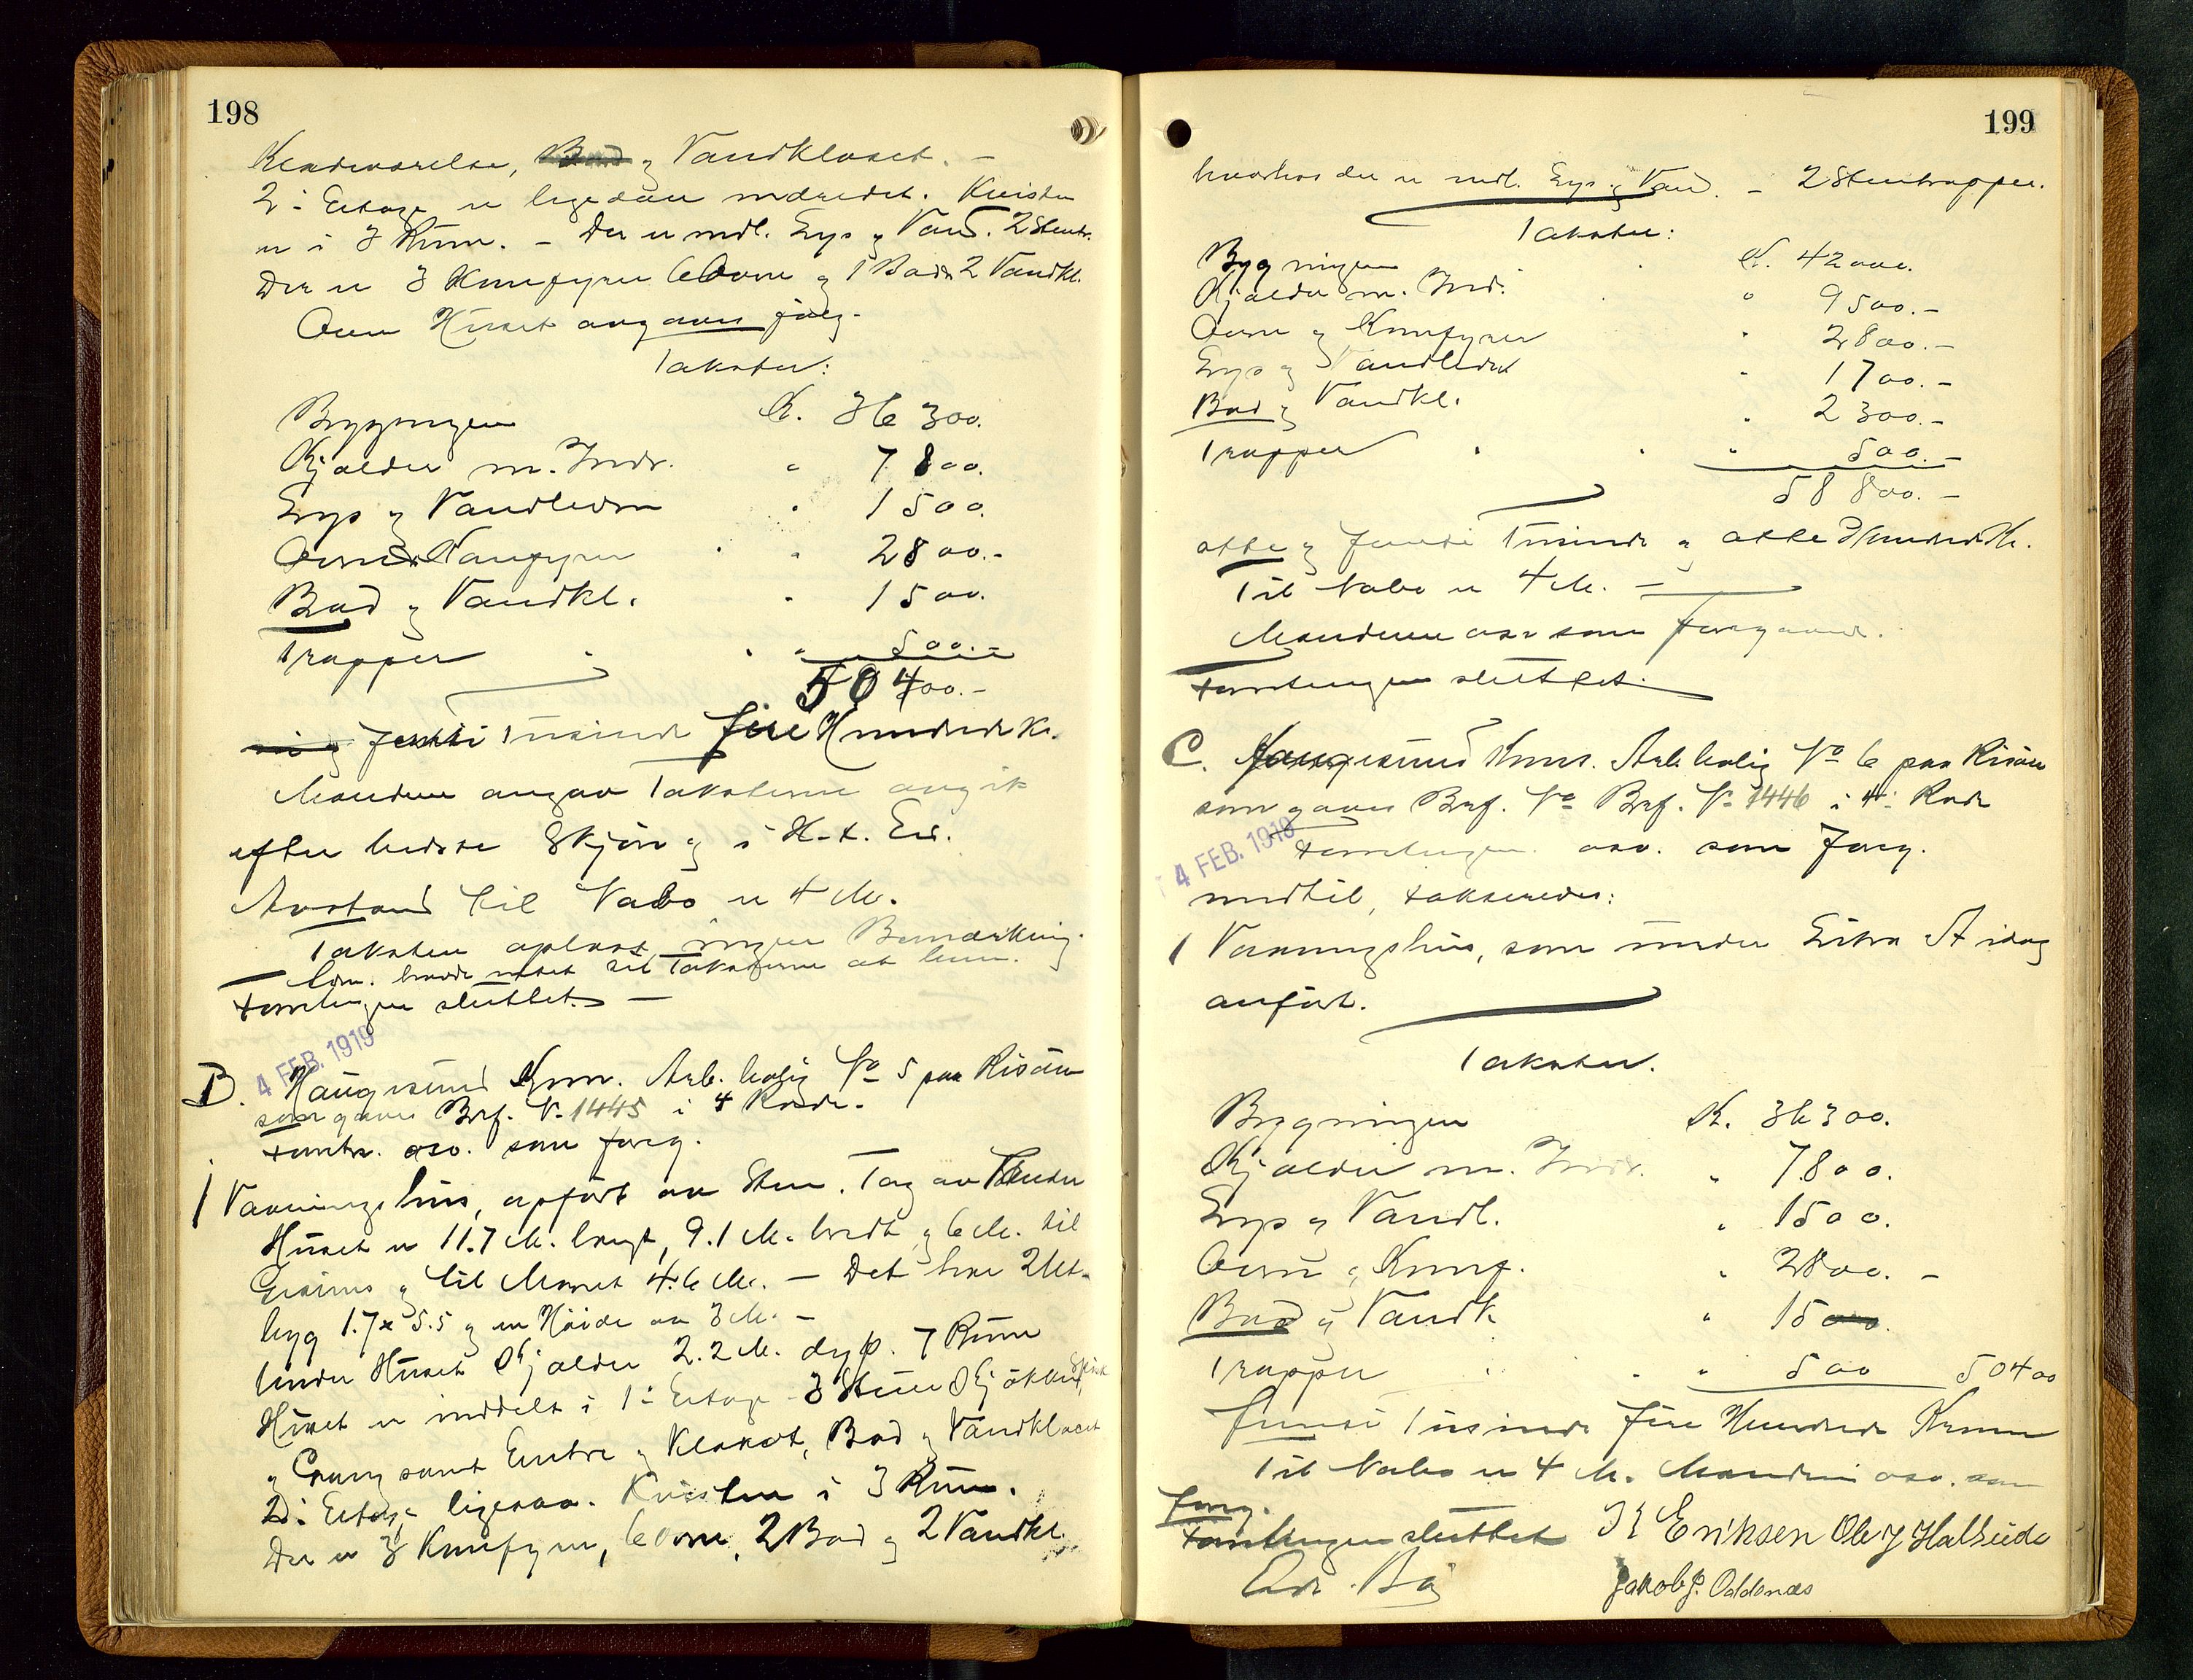 198
Badeværelse, Bad og Vandkloset. -
2. Etage er ligedan indredet. Kvisten
er i 3 Rum. - Der er indl. Gas og Vand. 2 Stentr.
Der er 3 Komfyrer 6 Ovne og 1 Bad 2 Vandkl.
Ovn Huset angaves
Takster:
Bygningen K. 36 300.
Kjælder m. Indr. " 7 800.
Gas og Vandledn " 1500.
Ovne & Komfyrer " 2800.-
Bad og Vandkl. " 1500.
Trapper " 500.-
50400.-
femti Tusinde fire Hundrede Kr.
Mændene angav Taksterne avgit
efter bedste Skjøn og i H.t. Ed.
Avstand til Nabo er 4 M.
Taksten oplæst ingen Bemærkning.
Kom. havde intet til Taksterne at
Forretningen sluttet. -
4 FEB. 1919
B. Haugesund Kom. Arb. bolig No 5 paa Risøen
som gaves Brf. No 1445 i 4 Rode.
Forretn. osv. som foreg.
1 Vaaningshus, opført av Sten. Tag av
Huset er 11.7 M. langt, 9.1 M. bredt og 6 M. til
Gesims og til Mønet 4.6 M. - Det har 2 Ut-
byg 1.7 x 5.5 og en Høide av 3 M. -
Under Huset Kjælder 2.2 M. dyp. 7 Rum
Huset er inddelt i 1. Etage 3 Stuer Kjøkken, Spisk
og Gang samt Entre og Klosset, Bad og Vandkloset
2. Etage ligesaa. Kvisten i 3 Rum.
Der er 3 Komfyrer, 6 Ovne, 2 Bad og 2 Vandkl.
199
hvorhos der er indl. Gas og Vand. - 2 Stentrapper.
Takster:
Bygningen K. 42000.
Kjælder m. Ind. " 9500.-
Ovne og Komfyrer " 2800.-
Gas og Vandledn " 1700.-
Bad og Vandkl. " 2300.-
Trapper " 500.-
58 800.-
otte og femti Tusinde og otte Hundrede Kr.
Til Nabo er 4 M. -
Mændene osv som foregaaende.
Forretningen sluttet.
C. Haugesund Kom. Arb. bolig No 6 paa Risøen
som gaves Brf. No Brf. No 1446 i 4. Rode
4 FEB. 1919
Forretningen osv. som foreg.
indtil, takseredes:
1 Vaaningshus, som under Litra A idag
anført.
Takster.
Bygningen K. 36300.
Kjælder m. Indr. " 7800.
Gas og Vandl. " 1500.
Ovne og Komf. " 2800. -
Bad og Vandk " 1500.
Trapper " 500 50400
femti Tusinde fire Hundrede Kroner
Til Nabo er 4 M. Mændene osv. som
foreg.
Forretningen sluttet K Eriksen Ole J Halseide
Jakob J. Oddenæs